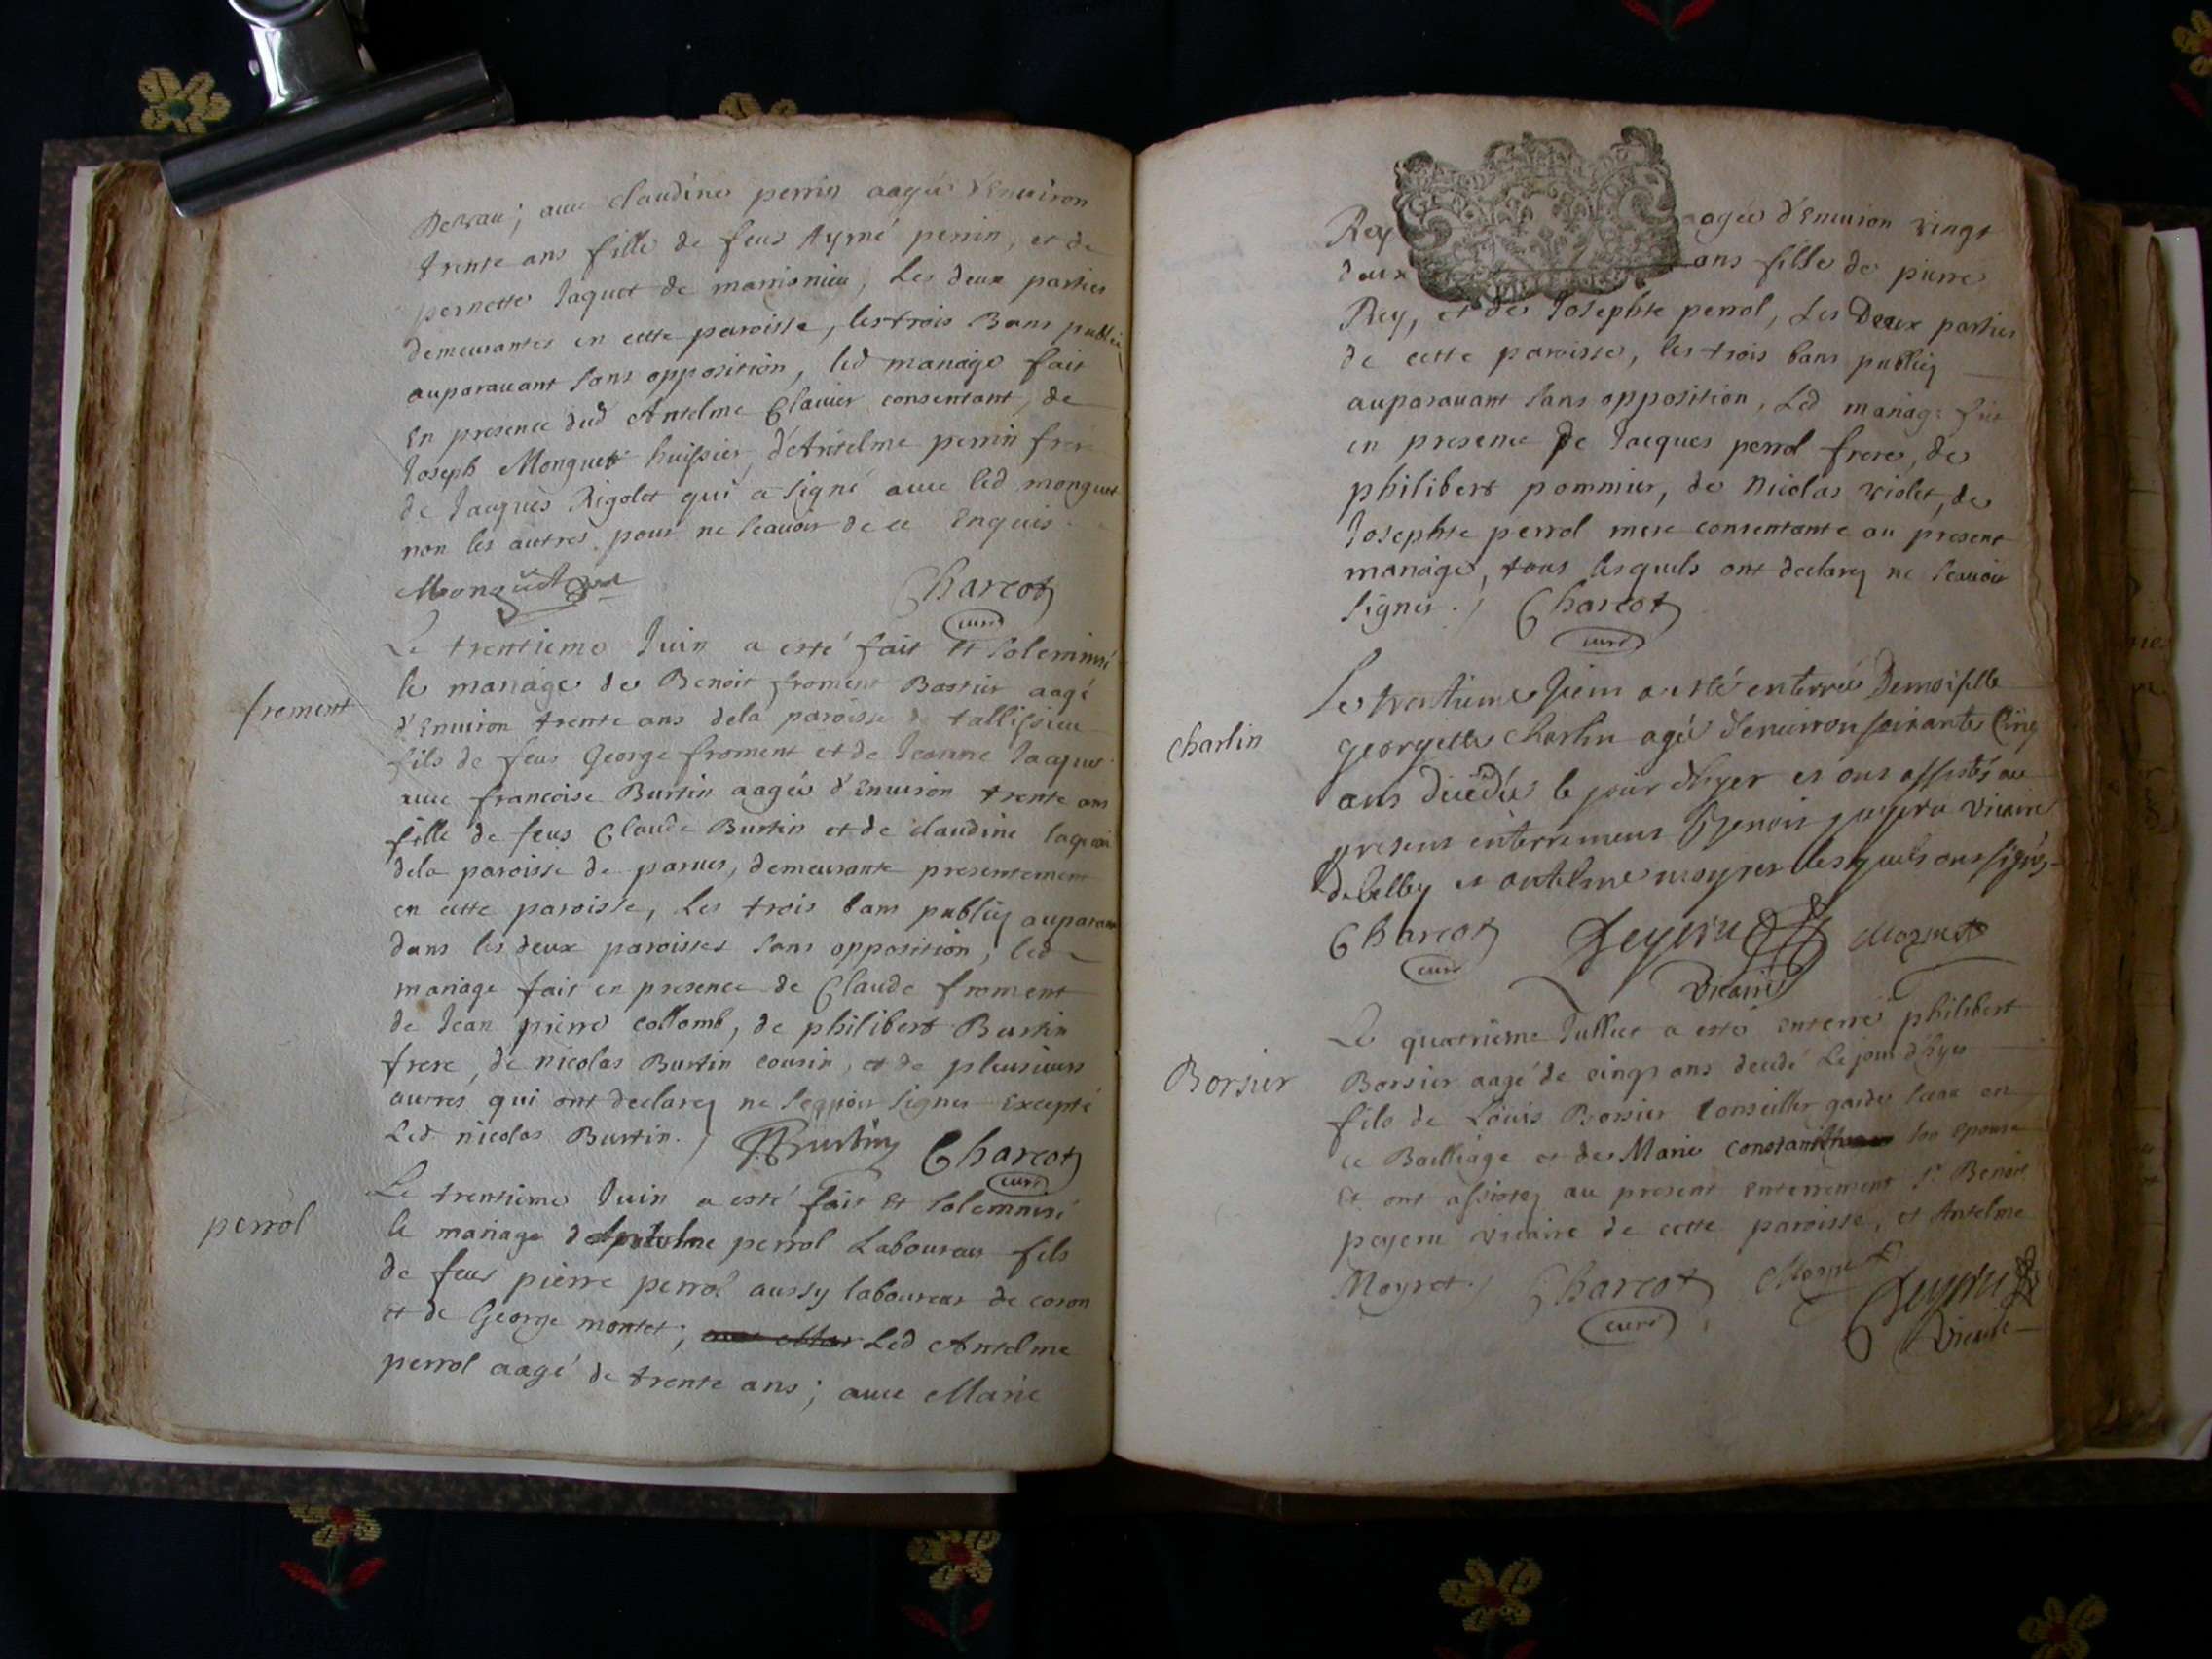 auec claudine perrin aagée d'Enuiron
trente ans fille de feus Aymé perrin, et de
pernette Jaquet de marrisnieu, Les deux parties
demeurantes en cette paroisse, les trois Bans publié
auparauant sans opposition, led mariage fait
En presence dud Antelme Clauier consentant, de
Joseph Monguet huissier, d'Antelme perrin frere
de Jacques Rigolet qui a signé auec led monguet
non les autres pour ne scauoir de ce Enquis.
Monguet Charcot
curé
Le trentieme Juin a esté fait et solemnisé
froment
le mariage de Benoit froment Bastier aagé
d'Enuiron trente ans dela paroisse de tallissieu
fils de feus George froment et de Jeanne Jacques
auec francoise Burtin aagée d'Enuiron trente ans
fille de feus Claude Burtin et de claudine
dela paroisse de parues, demeurante presentement
en cette paroisse, Les trois bans publiez auparauant
dans les deux paroisses sans opposition, led
mariage fait en presence de Claude froment
de Jean pierre collomb, de philibert Burtin
frere, de nicolas Burtin cousin, et de plusieurs
autres qui ont declarez ne scauoir signer Excepté
Led nicolas Burtin. / Burtin Charcot
curé
Le trentieme Juin a esté fait et solemnisé
perrol
le mariage d'Antelme perrol Laboureur fils
de feus pierre perrol aussy laboureur de coron
et de George montet; Led Antelme
perrol aagé de trente ans; auec Marie
Rey agée d'Enuiron vingt
deux ans fille de pierre
Rey, et de Josephte perrol, Les Deux parties
de cette paroisse, les trois bans publiez
auparauant sans opposition, Led mariage fait
en presence de Jacques perrol frere, de
philibert pommier, de Nicolas violet, de
Josephte perrol mere consentante au present
mariage, tous lesquels ont declarez ne scauoir
signer. / Charcot
curé
Le trentieme Juin a esté enterrée Demoiselle
charlin
georgette charlin agée d'enuiron soixante Cinq
ans decedée le jour d'hyer et ont assistés au
present enterrement Benoit peyeru vicaire
de Belley et antelme moyret lesquels ont signés
Charcot peyeru Moyret
curé vicaire
Le quatrieme Jullet a esté enterré philibert
Borsier
Borsier aagé de cinq ans decedé Le jour d'hyer
fils de Louis Borsier Conseiller garde sceau en
ce Bailliage et de Marie constantin son Epouse
Et ont assistez au present Enterrement Sr Benoit
peyeru vicaire de cette paroisse, et Antelme
Moyret. / Charcot Moyret peyeru
curé vicaire